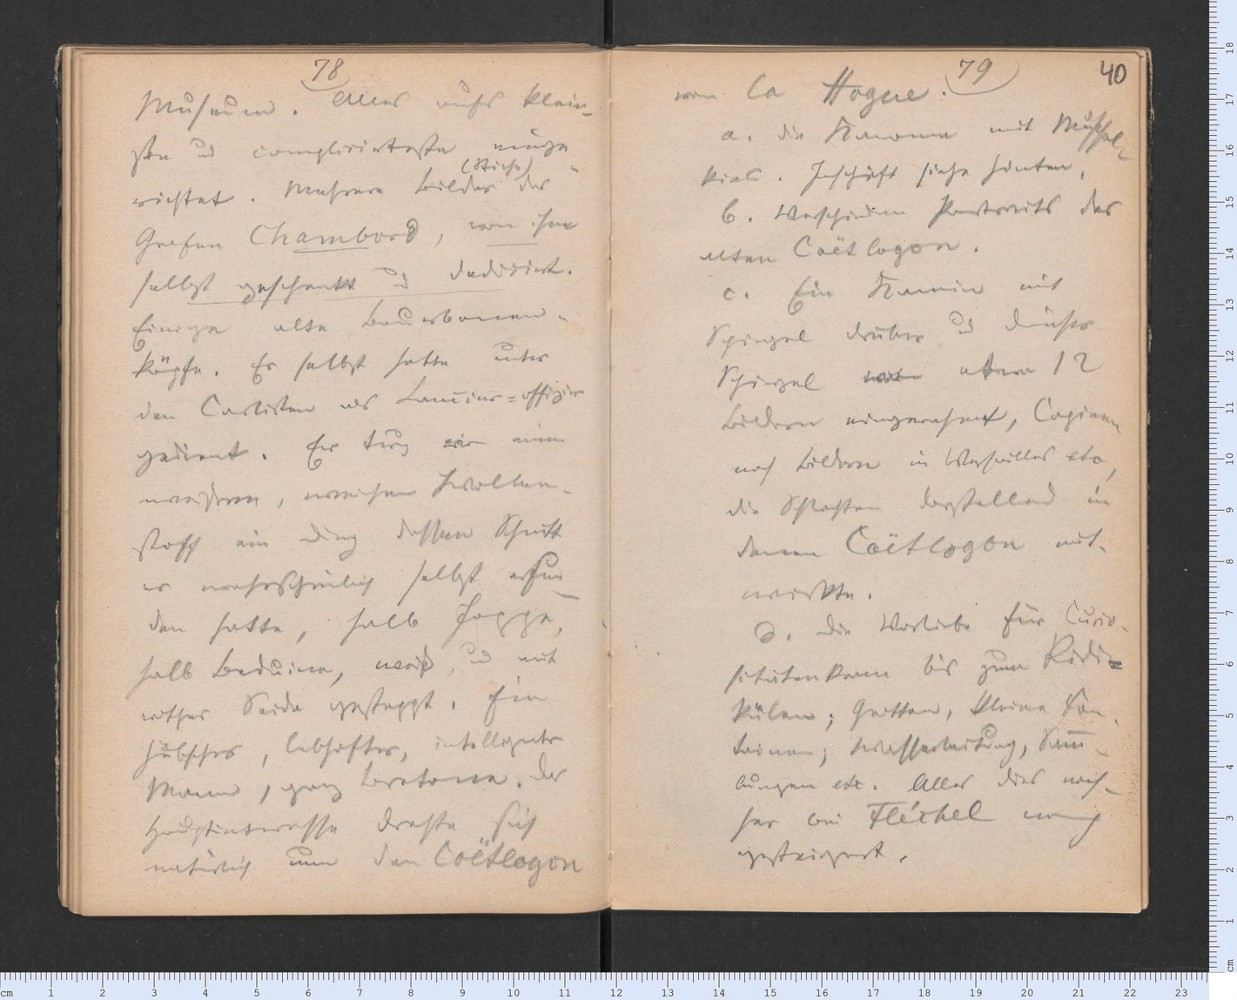 78
Museum. Alles aufs Klein-
ste u complicirteste einge-
richtet. Mehrere Bilder (Stiche) des
Grafen Chambord, von ihm
selbst geschenkt u dedicirt.
Einige alte Bourbonen-
köpfe. Er selbst hatte unter
den Carlisten als Lancier-offizier
gedient. Er trug einen
weißen, weichen Wollen-
stoff ein Ding dessen Schnitt
er wahrscheinlich selbst erfun-
den hatte, halb Joppe,
halb Beduine, weiß, u mit
rother Seide gesteppt. Ein
hübscher, lebhafter, intelligenter
Mann, ganz Bretone. Das
Hauptinteresse drehte sich
natürlich um den Coëtlogon
79
40
von La Hogue.
a. die Kanone mit Muschel-
kies. Inschrift siehe hinten.
b. Verschiedene Portraits des
alten Coëtlogon.
c. Ein Kamin mit
Spiegel drüber u dieser
Spiegel von etwa 12
Bildern eingerahmt, Copieen
nach Bildern in Versailles etc,
die Schlachten darstellend in
denen Coëtlogon mit-
wirkte.
d. Die Vorliebe für Curio-
sitätenkram bis zum Ridi-
külen; Grotten, kleine Fon-
tainen; Wasserleitung, Samm-
lungen etc. Alles dies nach-
her bei Fléchel noch
gesteigert.